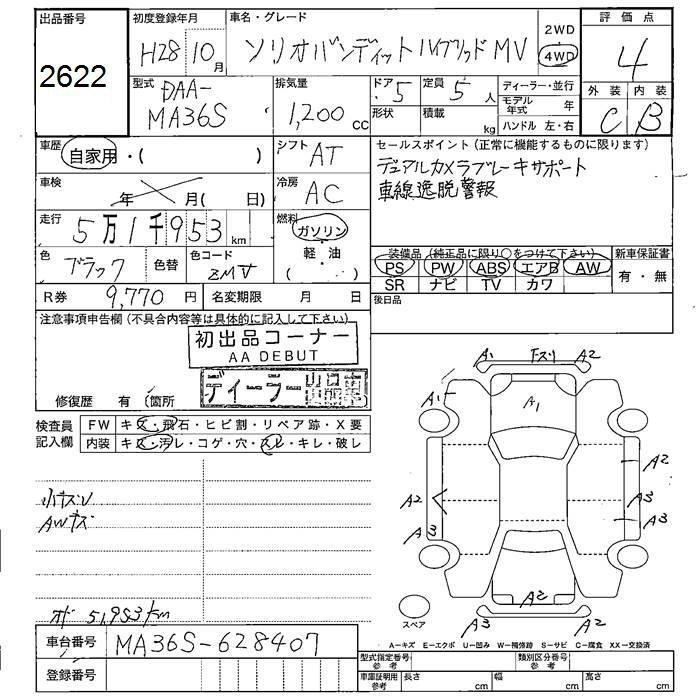 出品番号
2622
初度登録年月
H28 10月
車名・グレード
ソリオバンディットハイブリッドMV
2WD
4WD
評価点
4
外装 内装
C B
型式 DAA-
MA36S
排気量
1,200 cc
ドア 5
形状
定員 5 人
積載 kg
ディーラー・並行
モデル年式 年
ハンドル 左・右
車歴 自家用・( )
シフト AT
車検 年 月( 日)
冷房 AC
走行 5万1千953 km
燃料 ガソリン
軽・油
・( )
色 ブラック
色替
色コード ZMV
R券 9,770 円
名変期限 月 日
セールスポイント(正常に機能するものに限ります)
デュアルカメラブレーキサポート
車線逸脱警報
装備品(純正品に限り○をつけて下さい)
PS PW ABS エアB AW
SR ナビ TV カワ
新車保証書
有・無
後日品
注意事項申告欄(不具合内容等は具体的に記入して下さい)
初出品コーナー
AA DEBUT
ディーラー出品車
修復歴 有 (箇所
検査員記入欄
FW キズ・飛石・ヒビ割・リペア跡・X要
内装 キズ・汚レ・コゲ・穴・スレ・キレ・破レ
小キズU
AWキズ
オド 51,953km
A1 Fスリ A2
A1 A1
A2
A2 A3 A3
A3
A2
A3 A2
スペア
A-キズ E-エクボ U-凹み W-補修跡 S-サビ C-腐食 XX-交換済
車台番号 MA36S-628407
登録番号
型式指定番号 参考
類別区分番号 参考
車庫証明用 参考
長さ cm
幅 cm
高さ cm